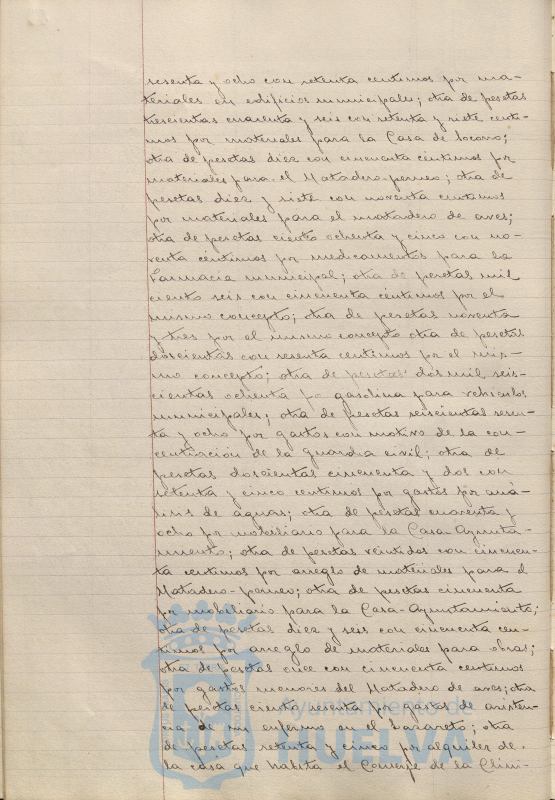 sesenta y ocho con setenta centimos por ma-
teriales en edificios municipales; otra de pesetas
trescientas cuarenta y seis con setenta y siete centi-
mos por materiales para la Casa de Socorro;
otra de pesetas diez con cincuenta céntimos por
materiales para el Matadero-perneo; otra de
pesetas diez y siete con noventa centimos
por materiales para el matadero de aves;
otra de pesetas ciento ochenta y cinco con no-
venta céntimos por medicamentos para la
Farmacia municipal; otra de pesetas mil
ciento seis con cincuenta céntimos por el
mismo concepto; otra de pesetas noventa
y tres por el mismo concepto otra de pesetas
doscientas con sesenta centimos por el mis-
mo concepto; otra de pesetas dos mil seis-
cientas ochenta po gasolina para vehiculos
municipales; otra de pesetas seiscientas sesen-
ta y ocho por gastos con motivo de la con-
centración de la guardia civil; otra de
pesetas doscientas cincuenta y dos con
setenta y cinco centimos por gastos por aná-
lisis de aguas; otra de pesetas cuarenta y
ocho por mobiliario para la Casa-Ayunta-
miento; otra de pesetas veintidos con cincuen-
ta centimos por arreglo de materiales para el
Matadero-perneo; otra de pesetas cincuenta
por mobiliario para la Casa-Ayuntamiento;
otra de pesetas diez y seis con cincuenta cen-
timos por arreglo de materiales para obras;
otra de pesetas once con cincuenta centimos
por gastos menores del Matadero de aves; otra
de pesetas ciento sesenta por gastos de asisten-
cia de un enfermo en el Lazareto; otra
de pesetas setenta y cinco por alquiler de
la casa que habita el Conserje de la Clini-
Ayuntamiento de
HUELVA